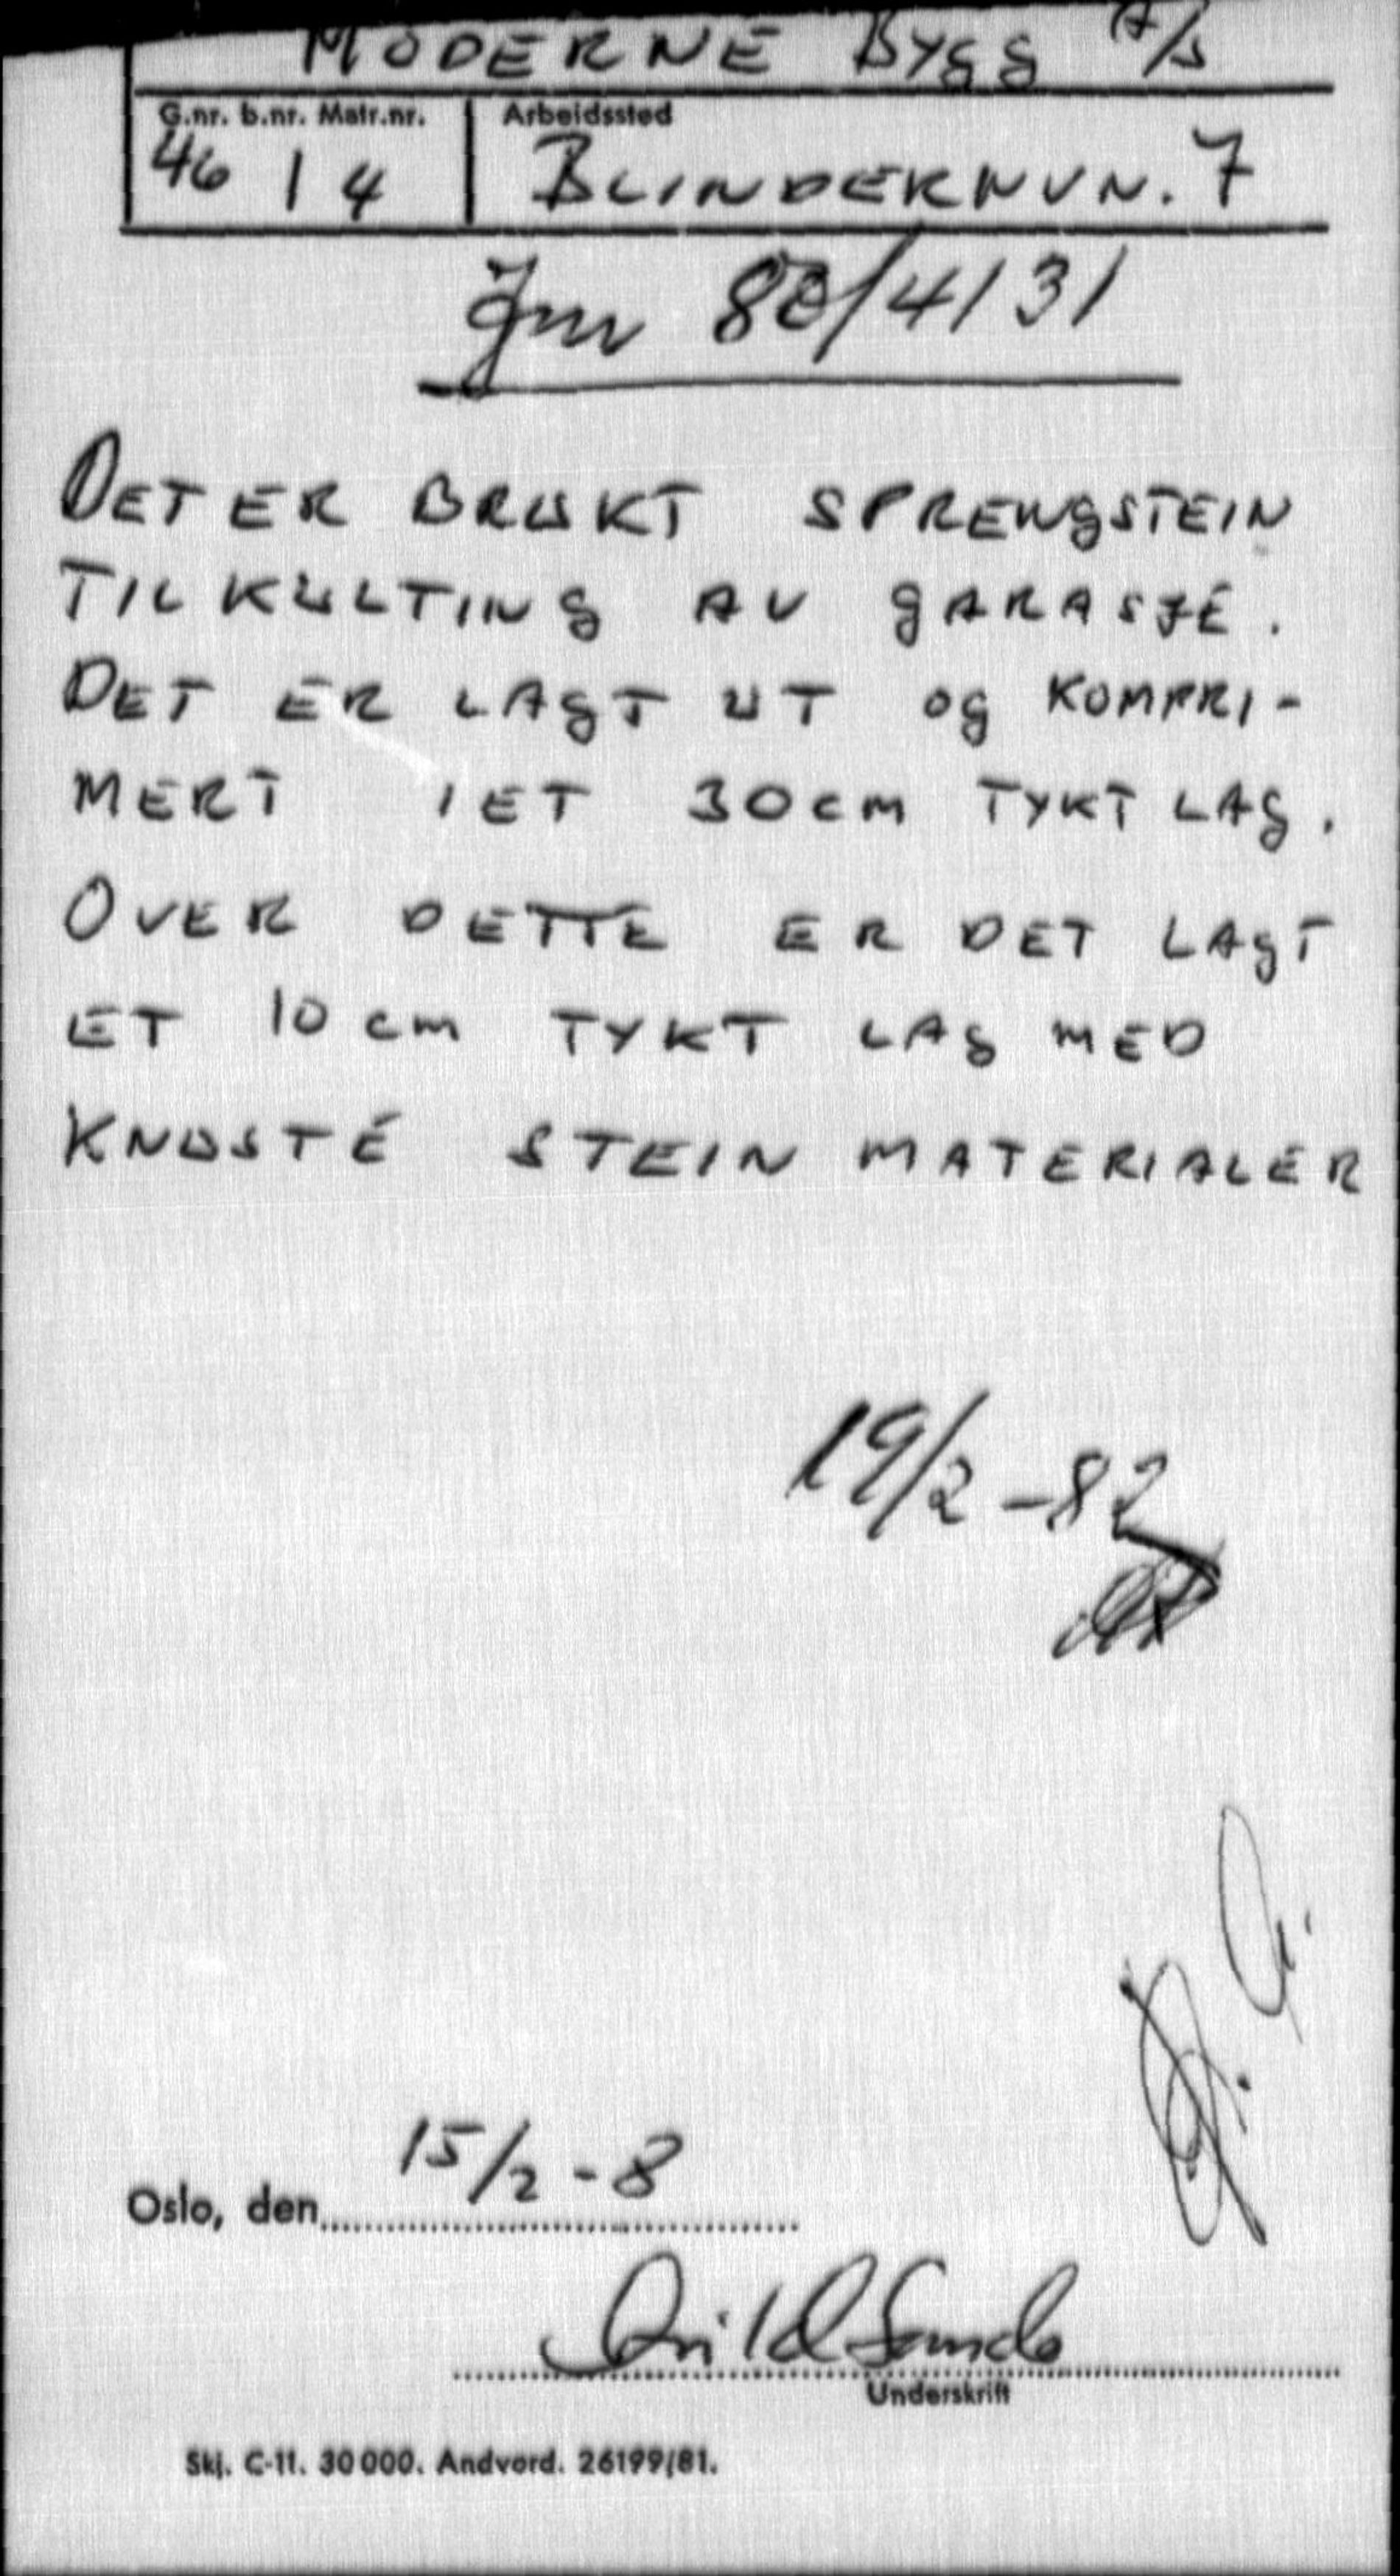 MODERNE BYGG A/S
G.nr. b.nr. Matr.nr. Arbeidssted
46 1 4 BLINDERNVN. 7
Jnr 80/4131
DET ER BRUKT SPRENGSTEIN
TIL KULTING AV GARASJE.
DET ER LAGT UT OG KOMPRI-
MERT I ET 30 cm TYKT LAG.
OVER DETTE ER DET LAGT
ET 10 cm TYKT LAG MED
KNUSTE STEIN MATERIALER
19/2-82
Oslo, den 15/2-8
Underskrift
Skj. C-11. 30000. Andvord. 26199/81.